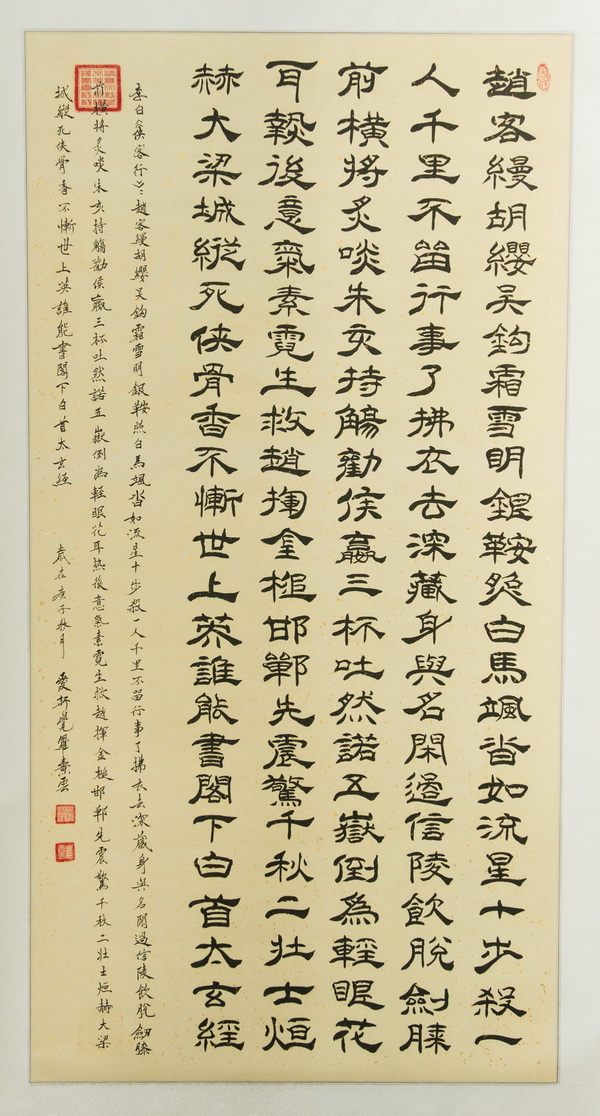 趙客縵胡纓吳鉤霜雪明銀鞍照白馬颯沓如流星十步殺一
人千里不留行事了拂衣去深藏身與名閑過信陵飲脫劍膝
前橫將炙啖朱亥持觴勸侯嬴三杯吐然諾五嶽倒為輕眼花
耳熱後意氣素霓生救趙揮金槌邯鄲先震驚千秋二壯士烜
赫大梁城縱死俠骨香不慚世上英誰能書閣下白首太玄經
李白俠客行 趙客縵胡纓吳鉤霜雪明銀鞍照白馬颯沓如流星十步殺一人千里不留行事了拂衣去深藏身與名閑過信陵飲脫劍膝
前橫將炙啖朱亥持觴勸侯嬴三杯吐然諾五嶽倒為輕眼花耳熱後意氣素霓生救趙揮金槌邯鄲先震驚千秋二壯士烜赫大梁
城縱死俠骨香不慚世上英誰能書閣下白首太玄經 歲在庚子秋月